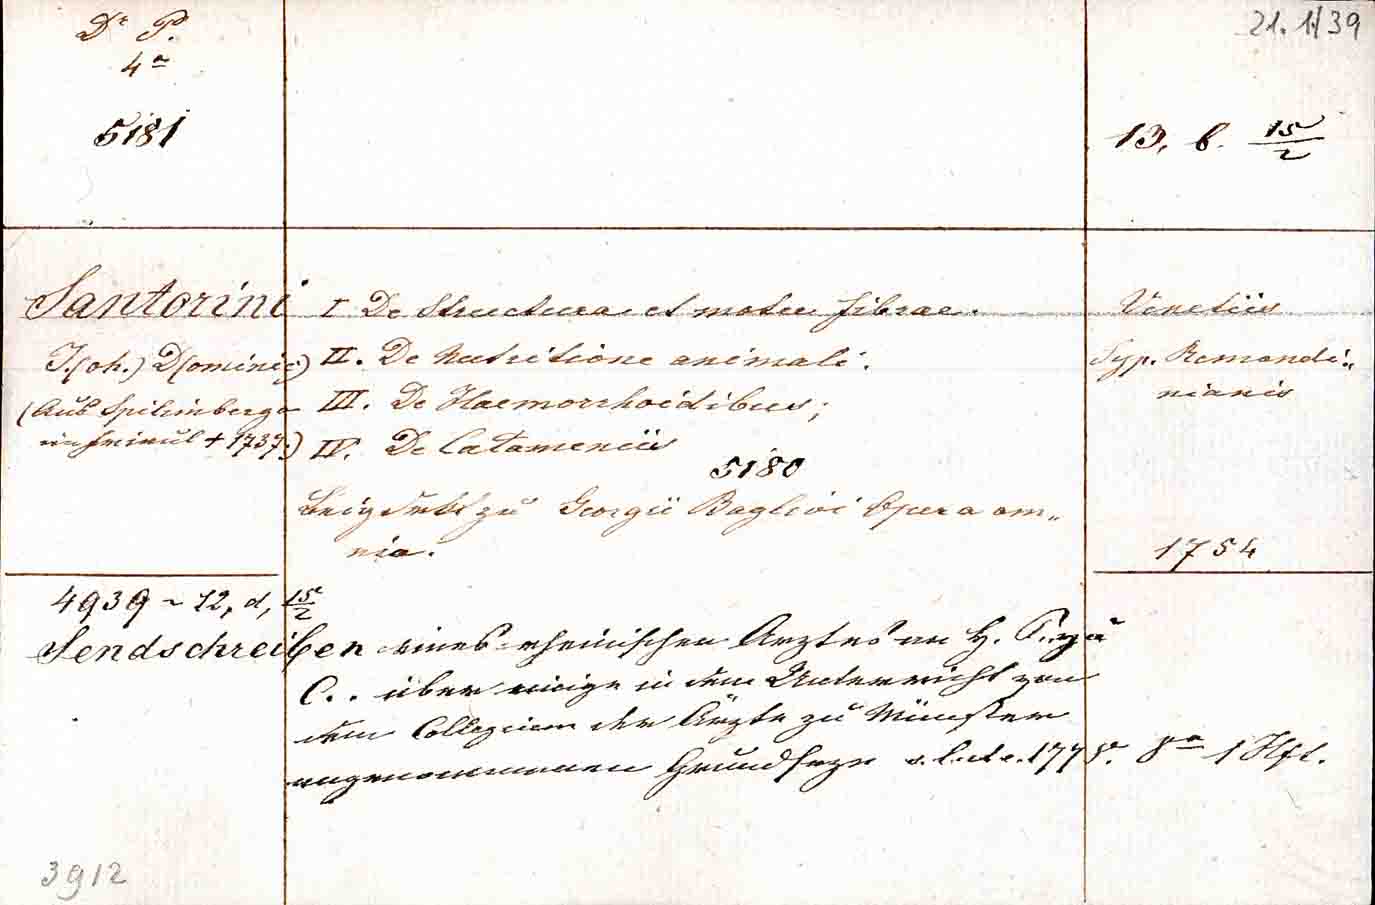 Dr P.
4º
5181
21. 1/39
13. b. 15/2
Santorini
J.(oh.) D(ominic)
(Aus Spilimbergo
in Friaul † 1737.)
I De Structura et motu fibrae.
II. De Nutritione animali.
III. De Haemorrhoidibus;
IV. De Catameniis
5180
Beigesetzt zu Georgii Baglivi Opera om„
nia.
Venetiis
Typ. Remondi„
nianis
1754
4939 ~ 12, d, 15/2
Sendschreiben eines rheinischen Arztes an H. P. zu
C.. über einige in dem Unterricht von
dem Collegium der Ärzte zu Münster
angenommenen Grundsäze s. l. et e. 1778. 8º 1 Hft.
3912